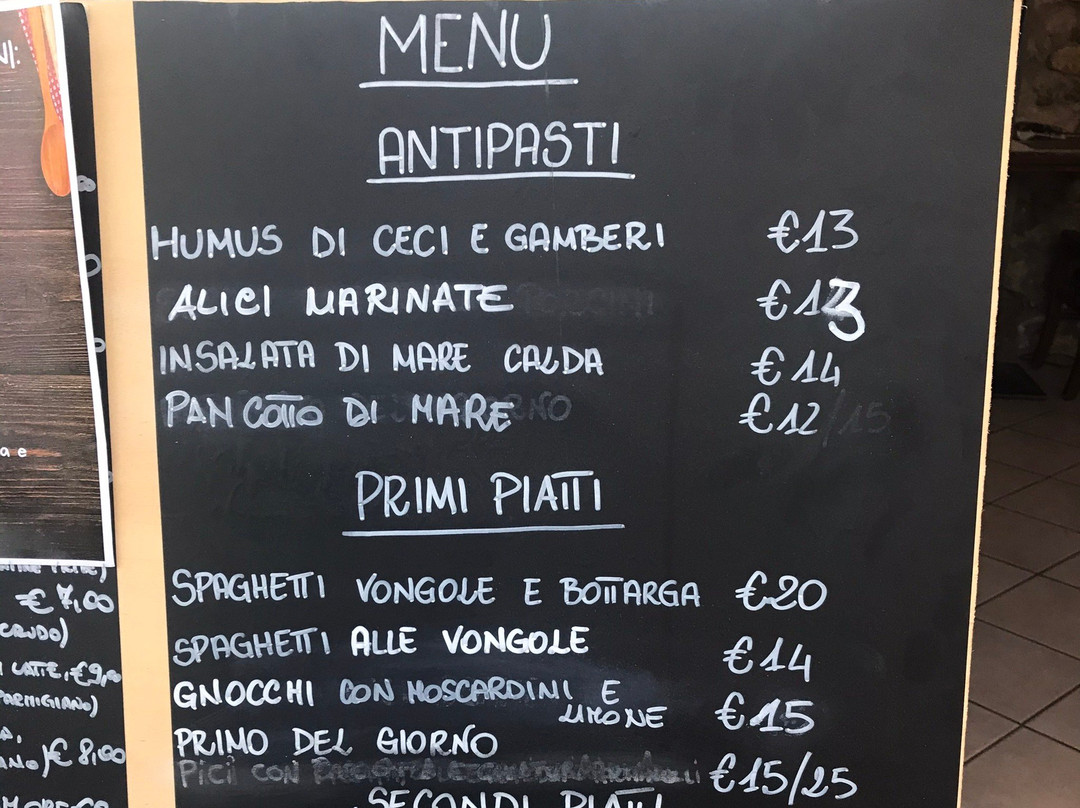 MENU
ANTIPASTI
HUMUS DI CECI E GAMBERI €13
ALICI MARINATE €13
INSALATA DI MARE CALDA €14
PAN COTTO DI MARE €12/15
PRIMI PIATTI
SPAGHETTI VONGOLE E BOTTARGA €20
SPAGHETTI ALLE VONGOLE €14
GNOCCHI CON MOSCARDINI E
LIMONE €15
PRIMO DEL GIORNO
PICI CON €15/25
SECONDI PIATTI
€7,00
CRUDO)
LATTE, €9,00
PARMIGIANO)
€ 8,00